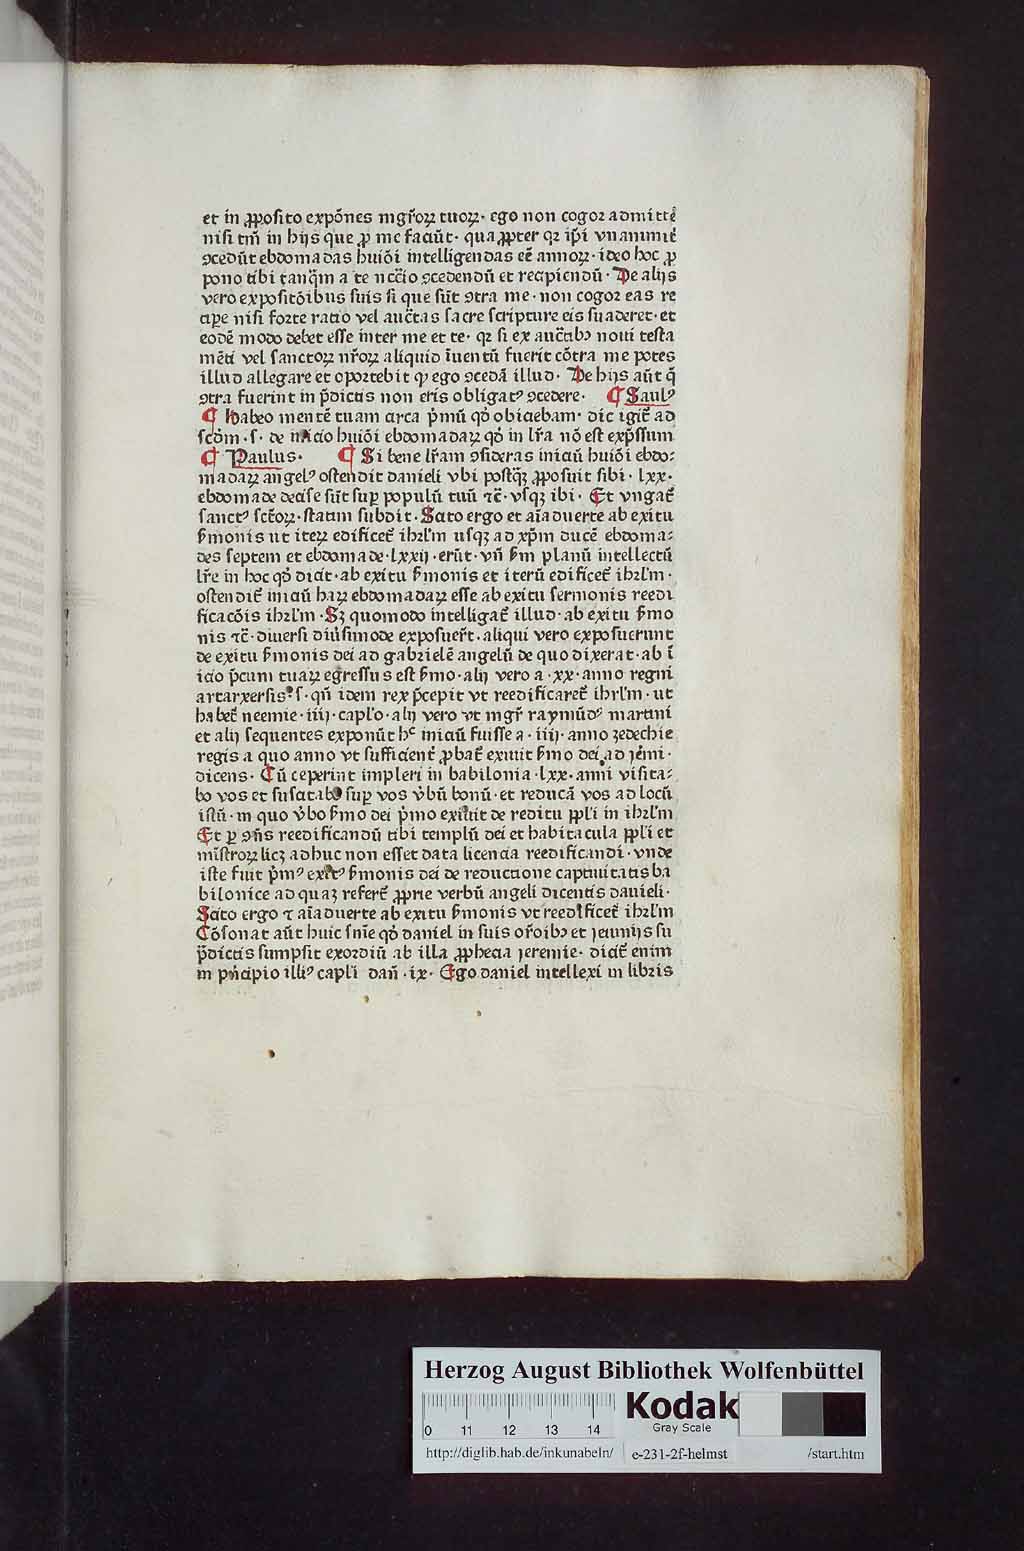 et in ꝓposito expōnes mgr̄oꝝ tuoꝝ· ego non cogor admittē
nisi tm̄ in hijs que ꝓ me faciūt· qua ꝓpter qꝛ ip̄i vnanimit̄
ꝯcedūt ebdomadas huiōi intelligendas eē annoꝝ· ideo hoc ꝓ
pono tibi tanq̄m a te nccīo ꝯcedendū et recipiendū· De alijs
vero expositōibus suis si que sūt ꝯtra me· non cogor eas re
cipē nisi forte ratio vel auctas̄ sacre scripture eis suaderet· et
eodē modo debet esse inter me et te· qꝛ si ex auctībꝫ noui testa
mēti vel sanctoꝝ nr̄oꝝ aliquid īuentū fuerit cōtra me potes
illud allegare et oportebit ꝙ ego ꝯcedā illud· De hijs aūt q̄
ꝯtra fuerint in p̄dictis non eris obligatꝰ ꝯcedere· ¶ Saulꝰ
¶ Habeo mentē tuam circa p̄mū qō obiciebam· dic igit̄ ad
scd̄m· s· de inicio huiōi ebdomadaꝝ qō in lr̄a nō est exp̄ssum
¶ Paulus· ¶ Si bene lr̄am ꝯsideras iniciū huiōi ebdo⸗
madaꝝ angelꝰ ostendit danieli vbi postqꝫ̄ ꝓposuit sibi· lxx·
ebdomade decise sūt sup̄ populū tuū ⁊c̄· vsqꝫ ibi· Et vngat̄
sanctꝰ sctōꝝ· statim subdit· Scito ergo et aīaduerte ab exitu
ẜmonis ut iteꝝ edificet̄ ihrl̄m usqꝫ ad xp̄m ducē ebdoma⸗
des septem et ebdomade· lxxij· erūt· vn̄ ẜm planū intellectū
lr̄e in hoc qō dicit· ab exitu ẜmonis et iterū edificet̄ ihrl̄m·
ostendit̄ iniciū haꝝ ebdomadaꝝ esse ab exitu sermonis reedi
ficacōis ihrl̄m· Sꝫ quomodo intelligat̄ illud· ab exitu ẜmo
nis ⁊c̄· diuersi diūsimode exposuer̄t· aliqui vero exposuerunt
de exitu ẜmonis dei ad gabrielē angelū de quo dixerat· ab ī
icio p̄cum tuaꝝ egressus est ẜmo· alij vero a· xx· anno regni
artarxersis· s· qn̄ idem rex p̄cepit vt reedificaret̄ ihrl̄m· ut
habet̄ neemie· iiij· capl̄o· alij vero vt mgr̄ raymūdꝰ martini
et alij sequentes exponūt hᶜ iniciū fuisse a· iiij· anno zedechie
regis a quo anno vt sufficient̄ ꝓbat̄ exiuit ẜmo dei ad jem̄i·
dicens· Cū ceperint impleri in babilonia· lxx· anni visita⸗
bo vos et suscitabo sup̄ vos v̄bū bonū· et reducā vos ad locū
istū· in quo v̄bo ẜmo dei p̄mo exiuit de reditu ppl̄i in ihrl̄m
Et ꝑ ꝯn̄s reedificandū tibi templū dei et habitacula ppl̄i et
mīstroꝝ licꝫ adhuc non esset data licencia reedificandi· vnde
iste fuit p̄mꝰ exitꝰ ẜmonis dei de reductione captiuitatis ba
bilonice ad quaꝫ refert̄ ꝓprie verbū angeli dicentis danieli·
Scito ergo ⁊ aīaduerte ab exitu ẜmonis vt reedificet̄ ihrl̄m
Cōsonat aūt huic snīe qō daniel in suis or̄oibꝫ et jeiunijs su
p̄dictis sumpsit exordiū ab illa ꝓphecia jeremie· dicit̄ enim
in pn̄cipio illiꝰ capl̄i dan̄· ix· Ego daniel intellexi in libris
Herzog August Bibliothek Wolfenbüttel
0 11 12 13 14
Kodak
Gray Scale
http://diglib.hab.de/inkunabeln/ e-231-2f-helmst /start.htm